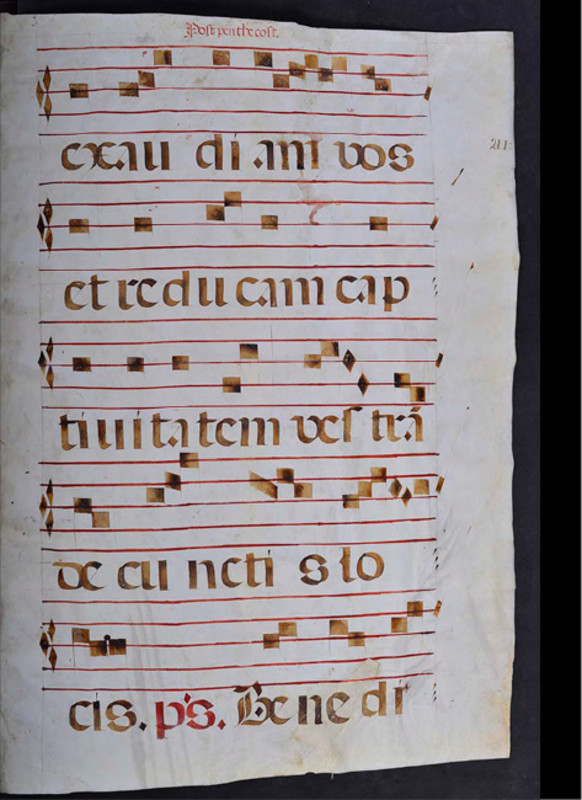 Post penthecost.
exau di am vos
et re du cam cap
ti ui ta tem vel trā
de cu ncti s lo
cis. p̄s. Be ne di